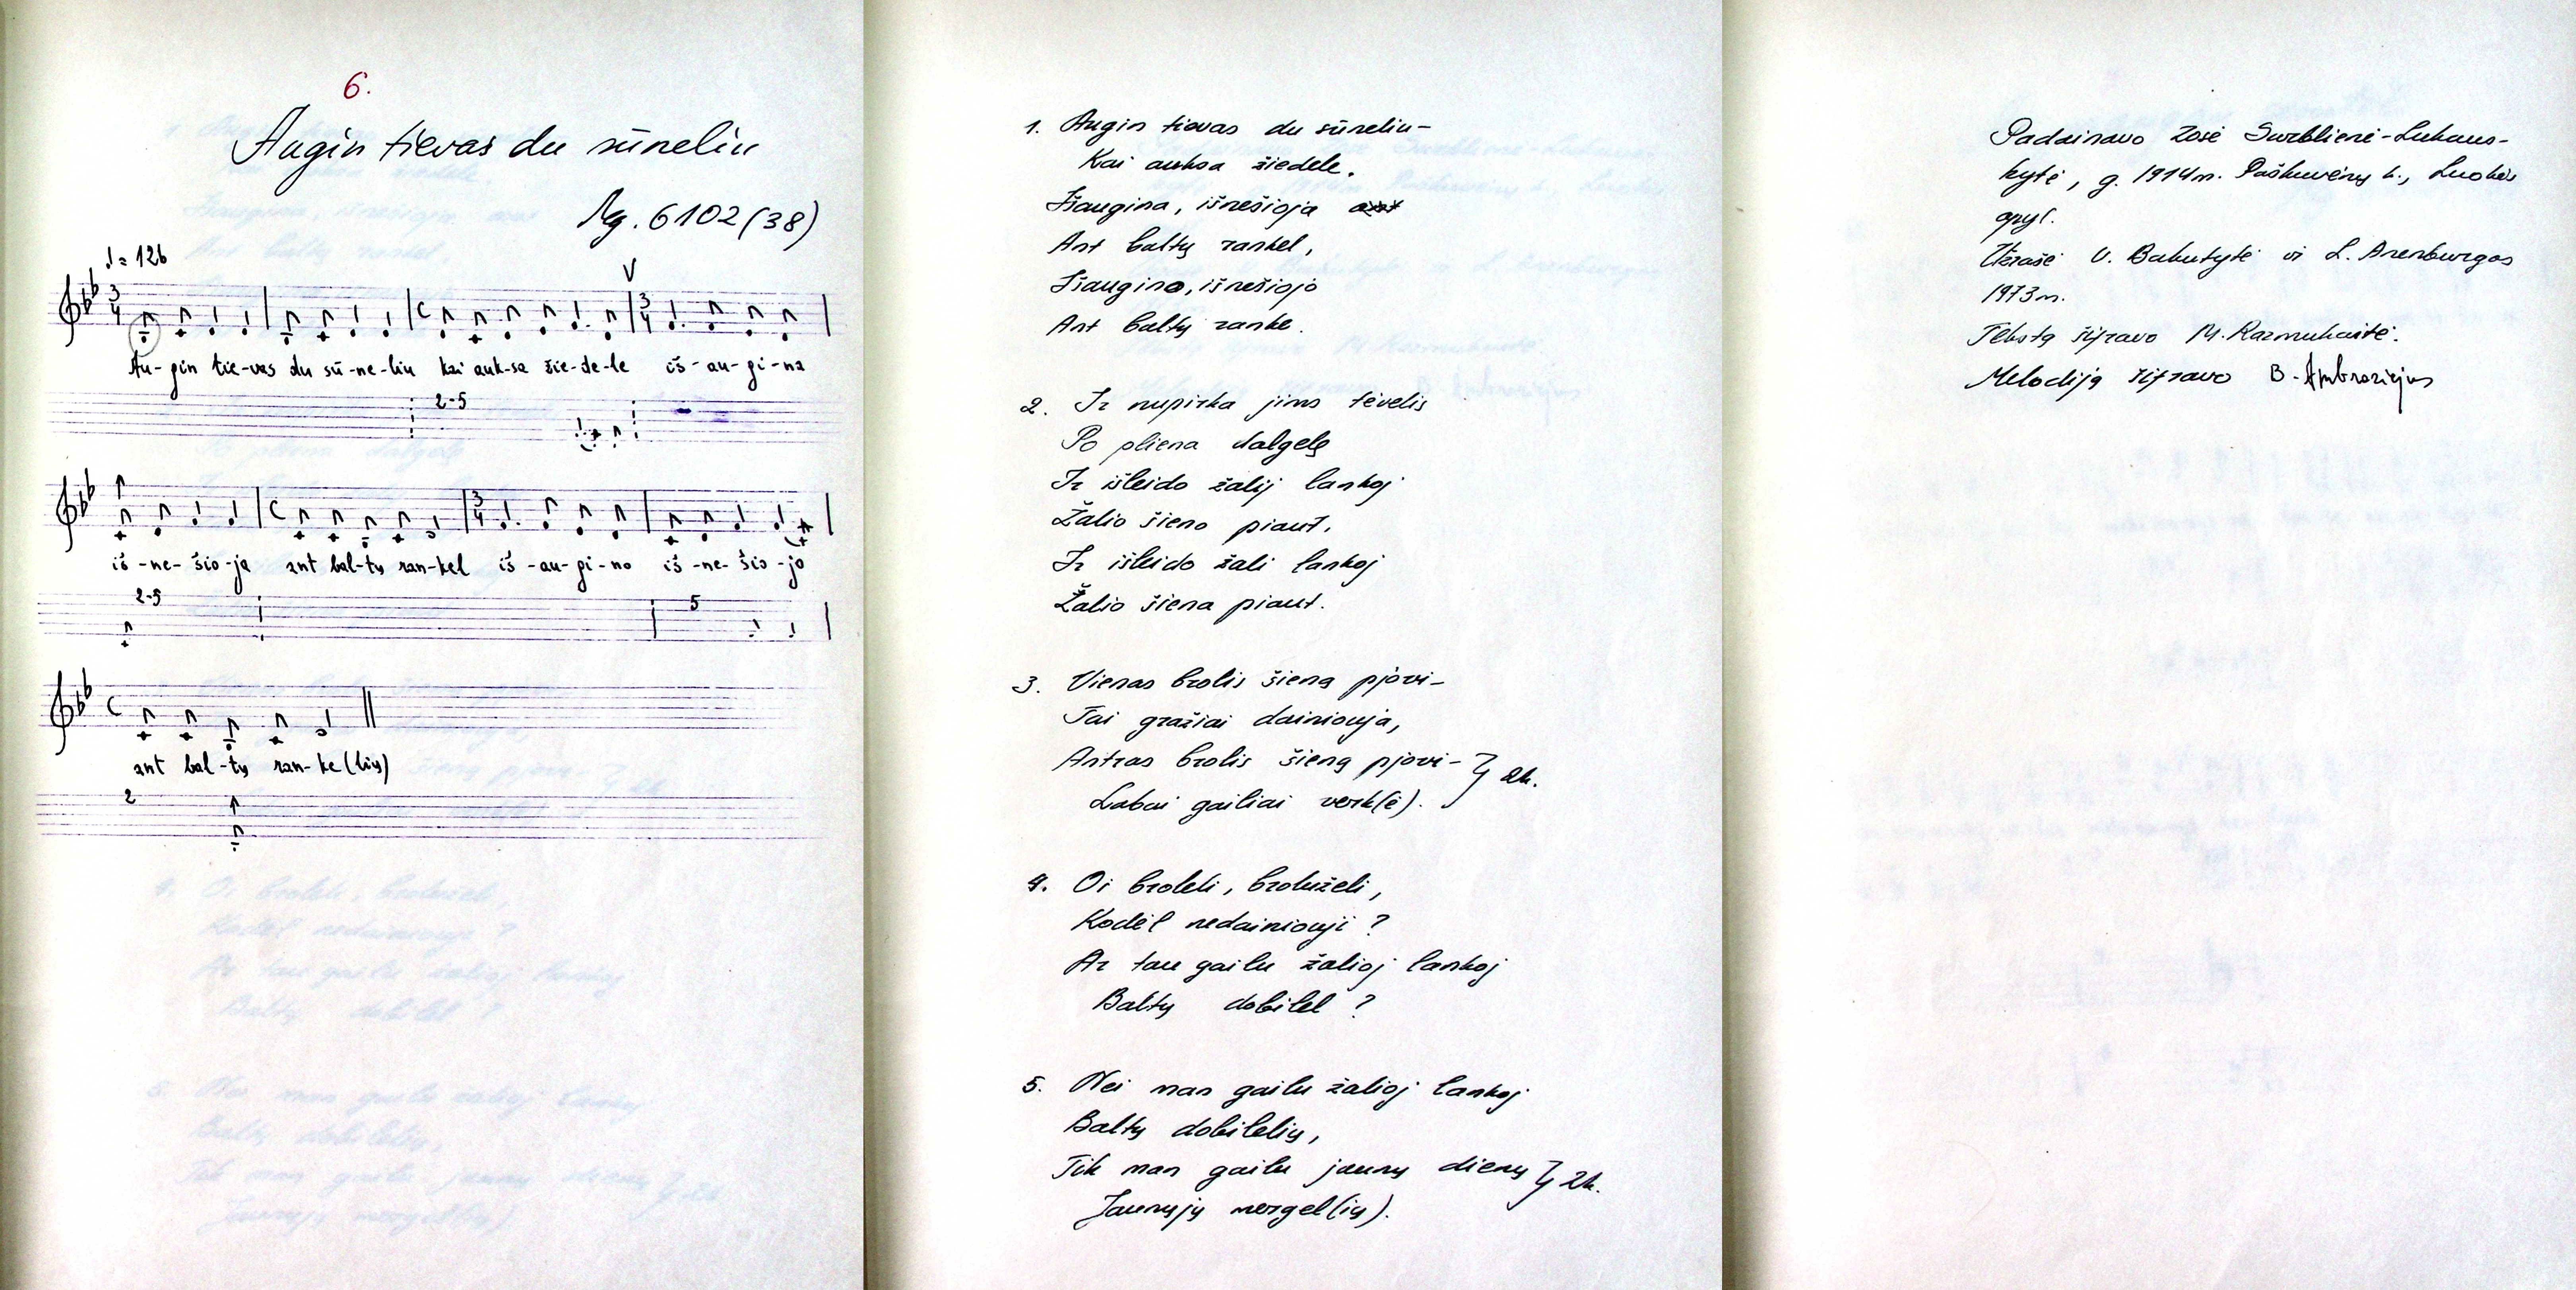 6.
Augin tievas du sūneliu
Mg. 6102(38)
♩= 126
V
3
4
C
3
4
Au-gin tie-vas du sū-ne-liu kai auk-sa žie-de-le iš-au-gi-na
2-5
C
3
4
iš-ne-šio-ja ant bal-tų ran-kel iš-au-gi-no iš-ne-šio-jo
2-5
5
C
ant bal-tų ran-ke(lių)
2
1. Augin tievas du sūneliu-
Kai auksa žiedele.
Išaugina, išnešioja
Ant baltų rankel,
Išaugino, išnešiojo
Ant baltų ranke.
2. Ir nupirka jims tėvelis
Po pliena dalgelę
Ir išleido žalij lankoj
Žalio šieno piaut,
Ir išleido žali lankoj
Žalio šiena piaut.
3. Vienas brolis šieną pjovi-
Tai gražiai dainiouja,
Antras brolis šieną pjovi- } 2k.
Labai gailiai verk(ė).
4. Oi broleli, broluželi,
Kodėl nedainiouji?
Ar tau gailu žalioj lankoj
Baltų dobilel?
5. Nei man gailu žalioj lankoj
Baltų dobilelių,
Tik man gailu jaunų dienų } 2k.
Jaunųjų mergel(ių).
Padainavo Zosė Surblienė-Lukaus-
kytė, g. 1914m. Paškuvėnų k., Luokės
apyl.
Užrašė V. Bakutytė ir L. Anenburgas
1973m.
Tekstą šifravo M. Razmukaitė.
Melodiją šifravo B. Ambraziejus